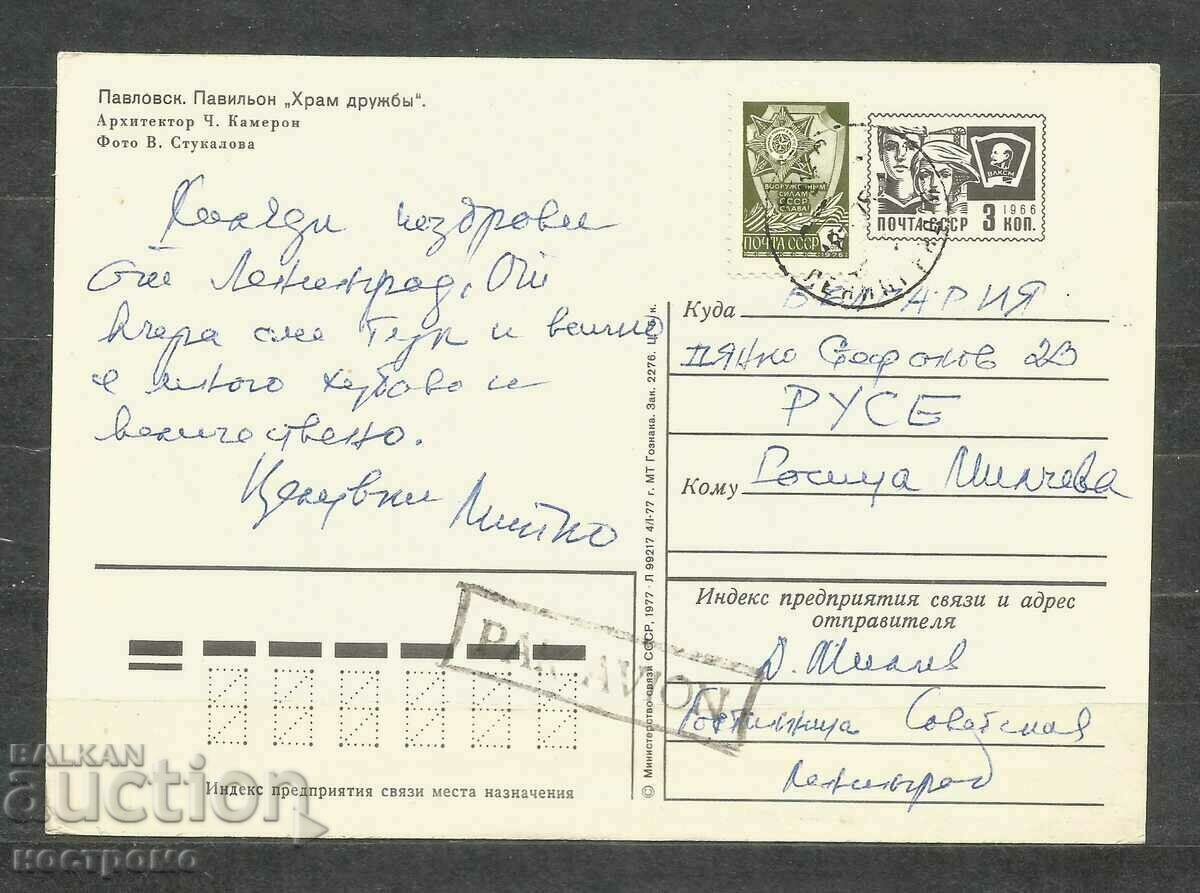 Павловск. Павильон „Храм дружбы".
Архитектор Ч. Камерон
Фото В. Стукалова
ВООРУЖЕННЫМ
СИЛАМ
СССР
СЛАВА!
ПОЧТА СССР
1976
ВЛКСМ
1966
ПОЧТА СССР 3 КОП.
Хиляди поздрави
от Ленинград. От
вчера сме тук и всичко
е много хубаво и
величествено.
Целувки Митко
Куда БЪЛГАРИЯ
Стефанов 23
РУСЕ
Кому Росица Милчева
Индекс предприятия связи и адрес
отправителя
Д.
Гостиница Советская
Ленинград
PAR AVION
© Министерство связи СССР, 1977 Л 99217 4/I-77 г. МТ Гознака. Зак. 2276. Ц. 4 к.
Индекс предприятия связи места назначения
BALKAN
auction
костромо